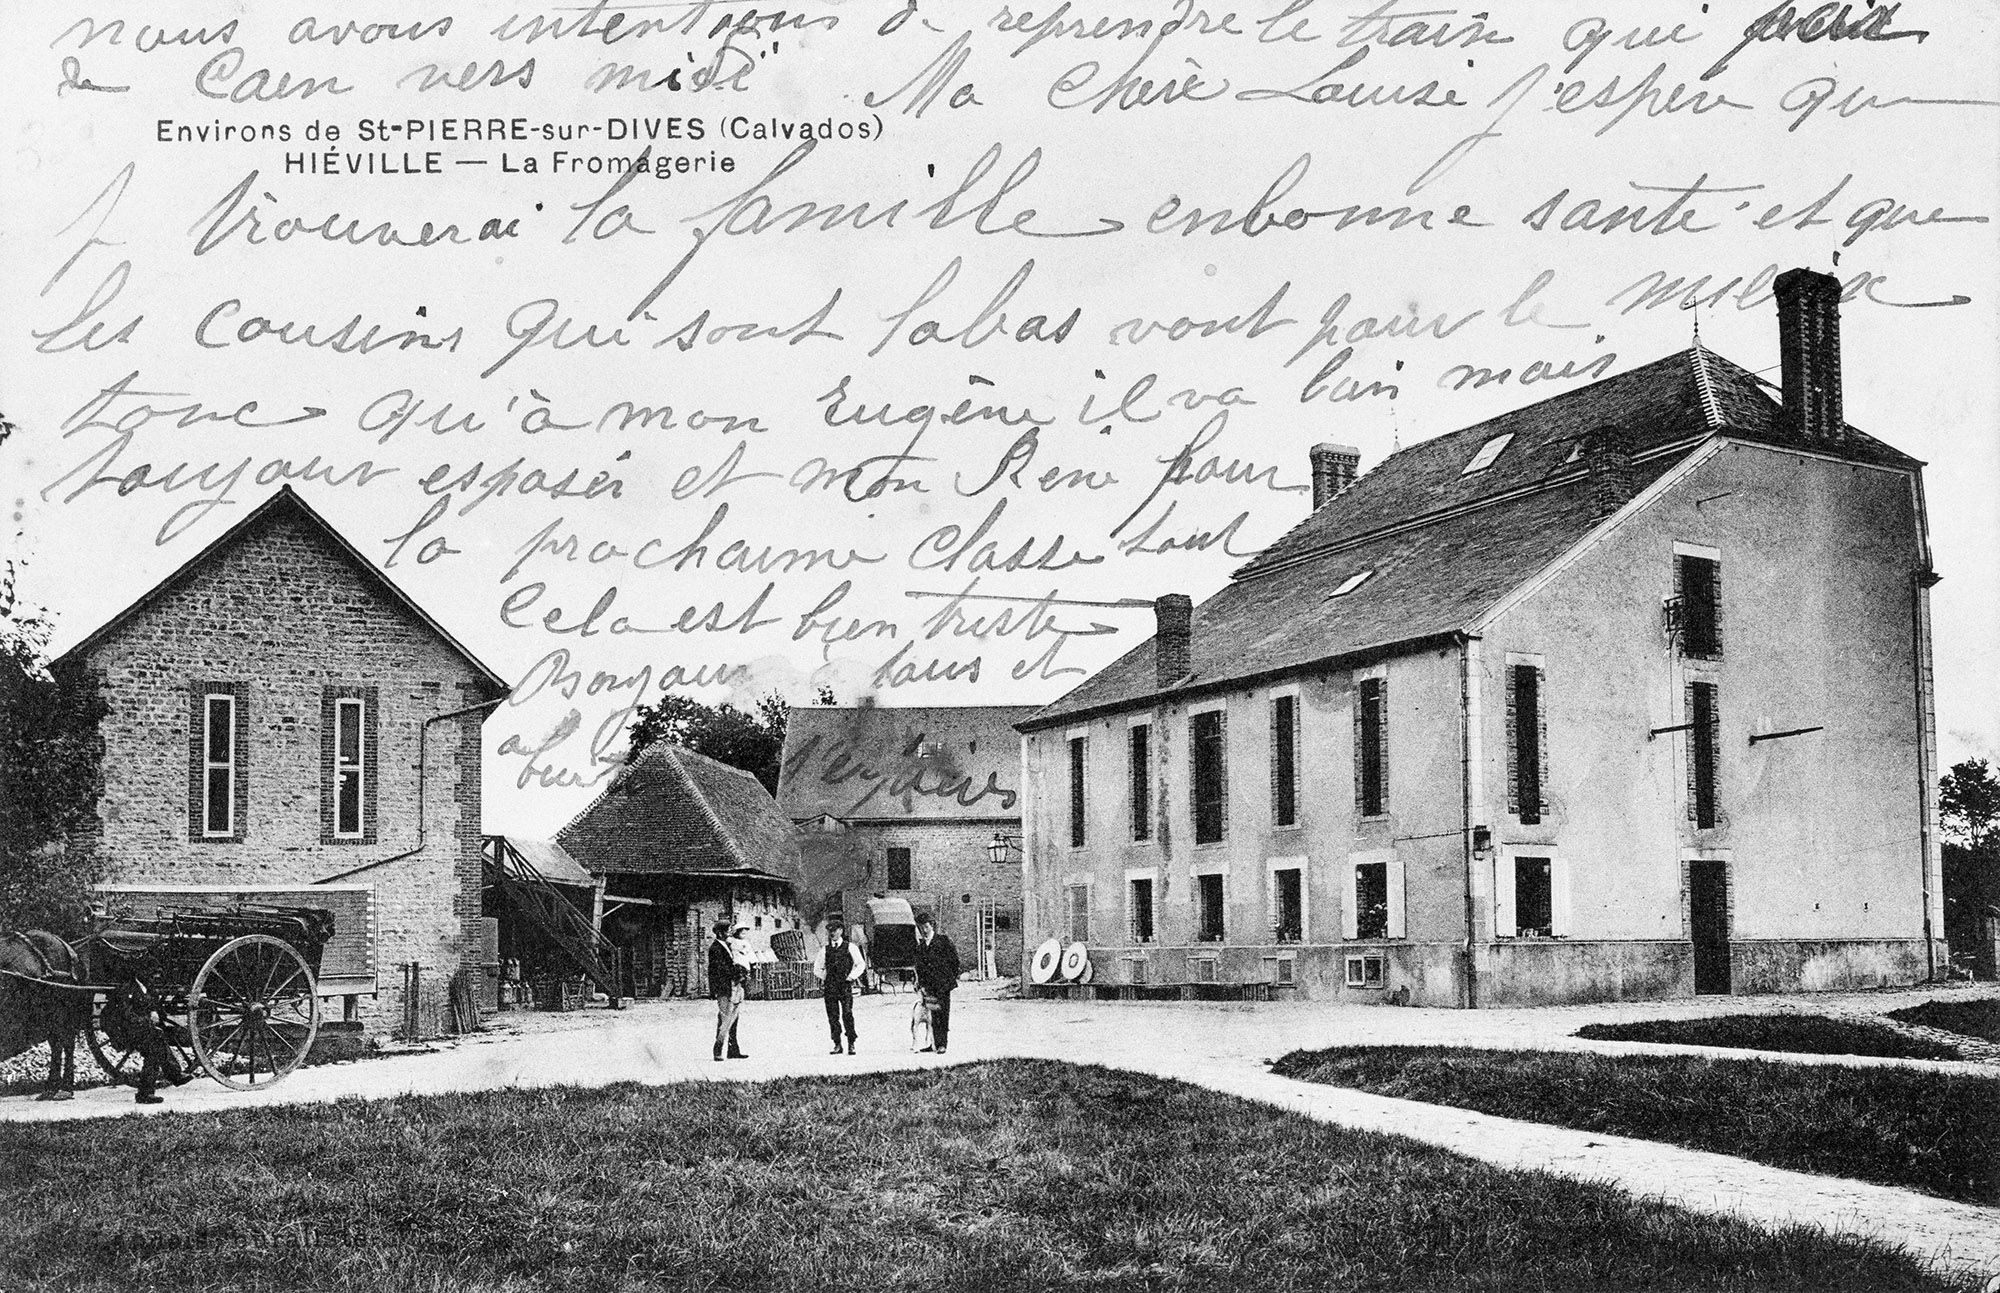 nous avons intentions de reprendre le train qui
de Caen vers midi Ma Chère Louise j'espère que
Environs de St-PIERRE-sur-DIVES (Calvados)
HIÉVILLE — La Fromagerie
je trouverai la famille en bonne santé et que
les cousins qui sont labas vont pour le mieux
tonc qu'à mon Eugène il va bien mais
toujour esposér et mon René pour
la prochaine classe tout
Cela est bien triste
Bonjour à tous et
a